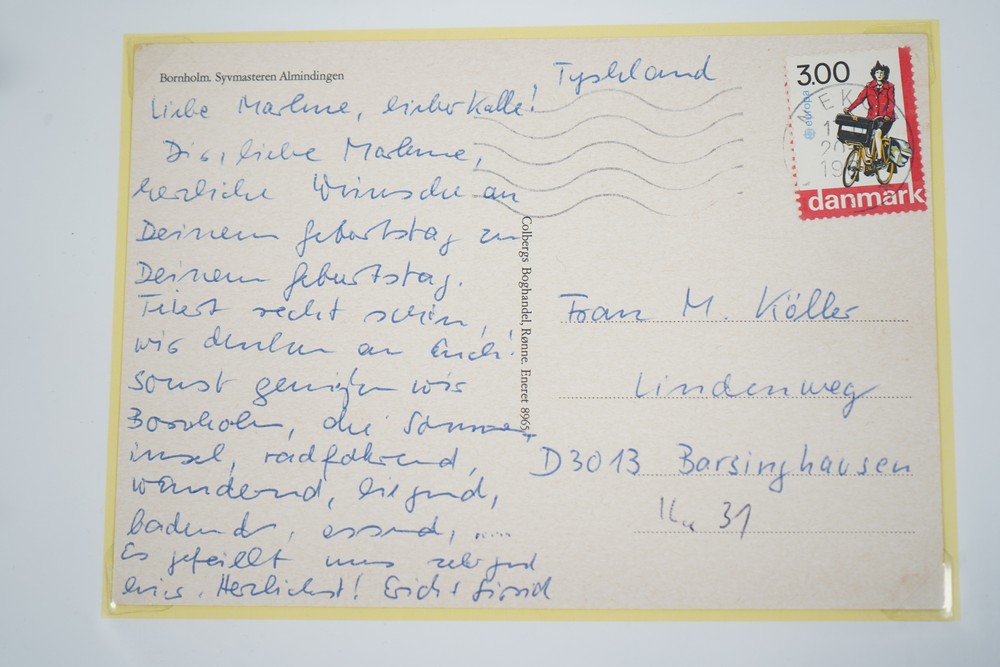 Bornholm. Syvmasteren Almindingen
Liebe Marlene, lieber Kalle!
Dir, liebe Marlene,
herzliche Wünsche an
Deinem Geburtstag zu
Deinem Geburtstag.
Feiert recht schön,
wir denken an Euch!
Sonst genießen wir
Bornholm, die Sonnen-
insel, radfahrend,
wandernd, liegend,
badend, essend, .....
Es gefällt uns sehr gut
hier. Herzlichst! Erich +
Colbergs Boghandel, Rønne. Eneret 8965
Tyskland
3.00
europa
danmark
Frau M. Köller
Lindenweg
D3013 Barsinghausen
31